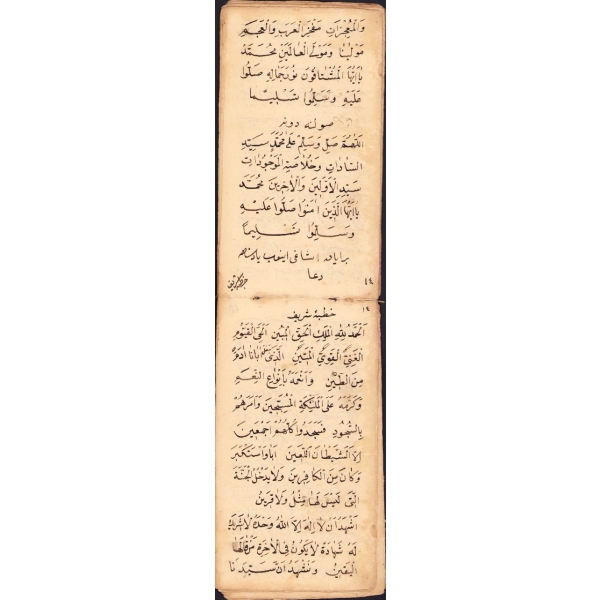 والمعجزات سفخر العرب والعجم
مولينا ومولى العالمين محمد
يا ايها المشتاقون نور جماله صلوا
عليه وسلموا تسليما
صوله دونر
اللهم صل وسلم على محمد سيد
السادات وخلاصة الموجودات
سيد الاولين والاخرين محمد
يا ايها الذين امنوا صلوا عليه
وسلموا تسليما
دعا
١٤
١٥
خطبة شريف
الحمد لله الملك الحق المبين الحي القيوم
الغني القوي المتين الذي خلق ابانا ادم
من الطين واكرمه بانواع النعم
وكرمه على الملئكة المسبحين وامرهم
بالسجود فسجدوا كلهم اجمعين
الا الشيطان اللعين ابا واستكبر
وكان من الكافرين ولا يدخل الجنة
التي ليس لها مثل ولا قرين
اشهد ان لا اله الا الله وحده لا شريك
له شهادة لا يكون في الاخرة من قالها
اليقين ونشهد ان سيدنا